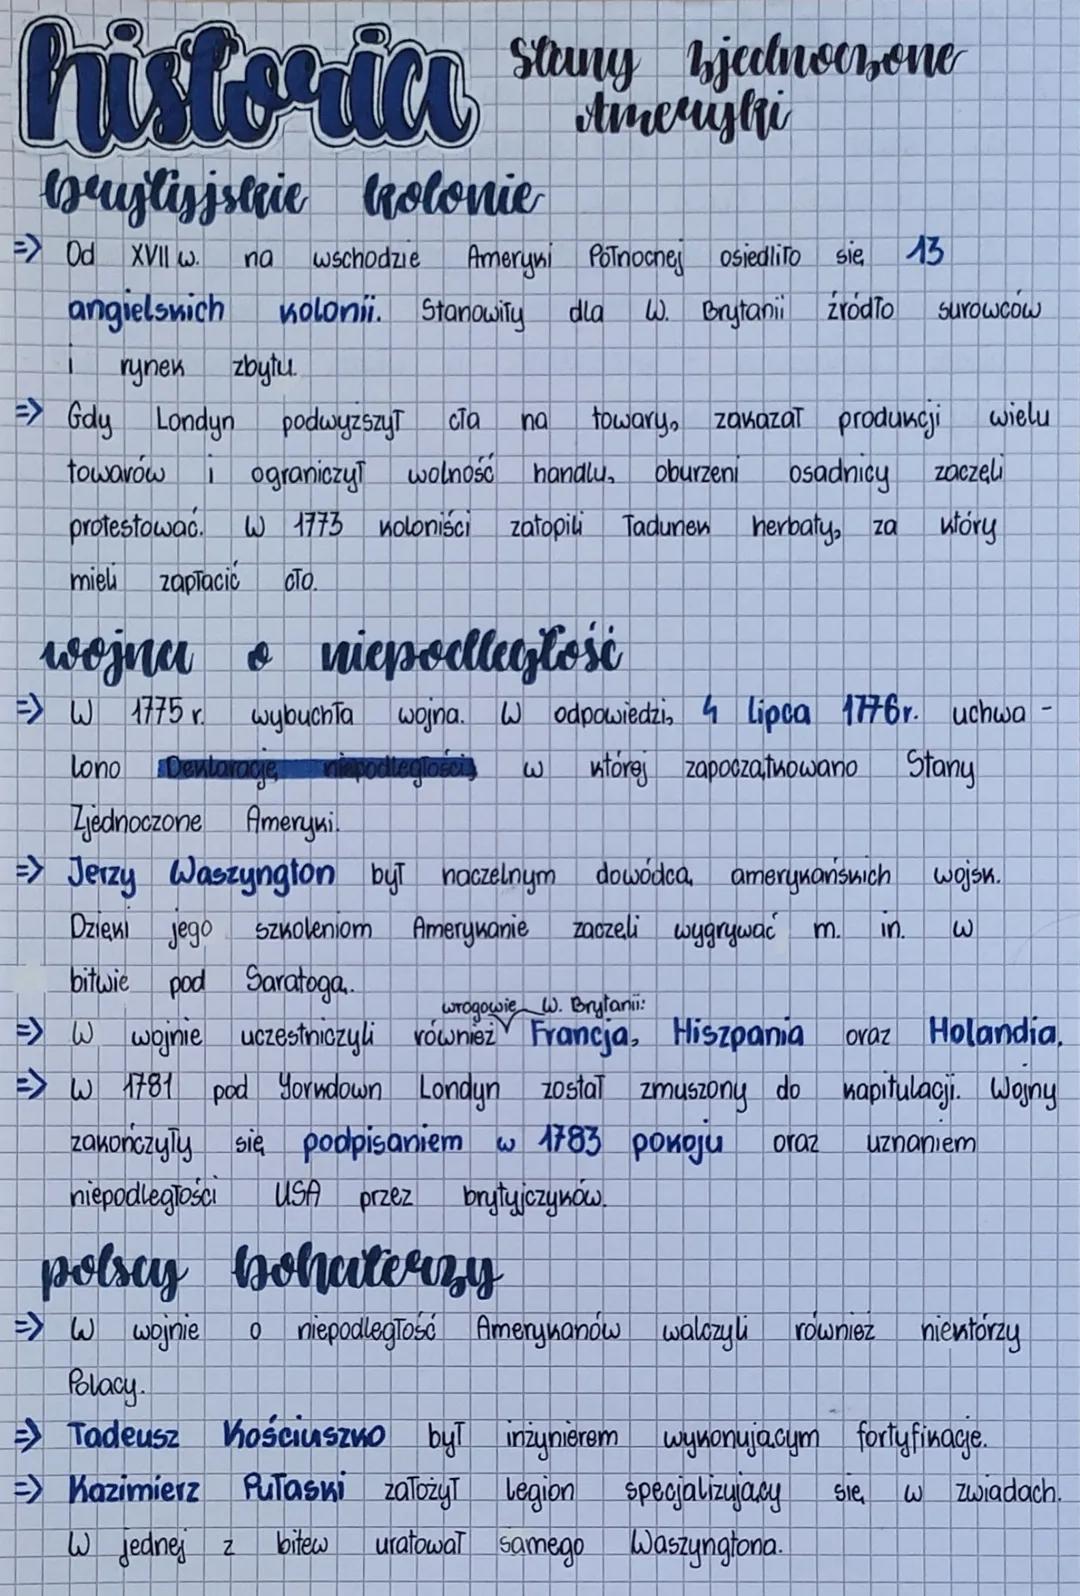 historia
Stany Zjednoczone
Ameryki
brytyjskie kolonie
=> Od XVII w. na wschodzie Ameryki Północnej osiedliło się 13
angielskich kolonii. Stanowiły dla W. Brytanii źródło surowców
i rynek zbytu.
=> Gdy Londyn podwyższył cła na towary, zakazał produkcji wielu
towarów i ograniczył wolność handlu, oburzeni osadnicy zaczęli
protestować. W 1773 koloniści zatopili ładunek herbaty, za który
mieli zapłacić cło.
wojna o niepodległość
=> W 1775 r. wybuchła wojna. W odpowiedzi, 4 lipca 1776r. uchwa -
lono Deklarację niepodległości, w której zapoczątkowano Stany
Zjednoczone Ameryki.
=> Jerzy Waszyngton był naczelnym dowódcą amerykańskich wojsk.
Dzięki jego szkoleniom Amerykanie zaczęli wygrywać m. in. w
bitwie pod Saratogą.
wrogowie W. Brytanii:
=> W wojnie uczestniczyli również Francja, Hiszpania oraz Holandia.
=> W 1781 pod Yorkdown Londyn został zmuszony do kapitulacji. Wojny
zakończyły się podpisaniem w 1783 pokoju oraz uznaniem
niepodległości USA przez brytyjczyków.
polscy bohaterzy
=> W wojnie o niepodległość Amerykanów walczyli również niektórzy
Polacy.
=> Tadeusz Kościuszko był inżynierem wykonującym fortyfikacje.
=> Kazimierz Pułaski założył legion specjalizujący się w zwiadach.
W jednej z bitew uratował samego Waszyngtona.